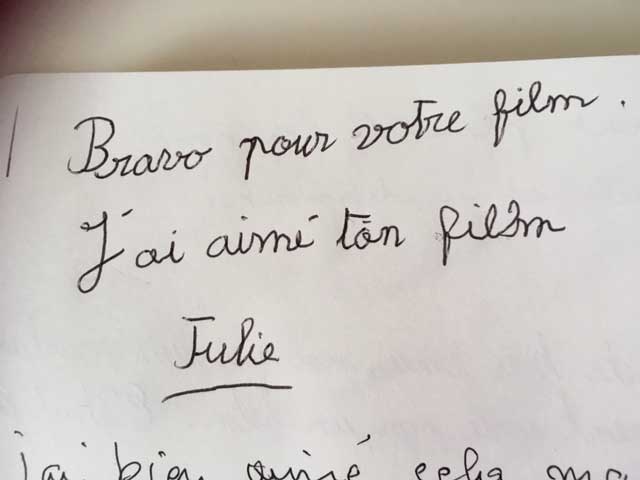 Bravo pour votre film.
J'ai aimé ton film
Julie
j'ai bien aimé